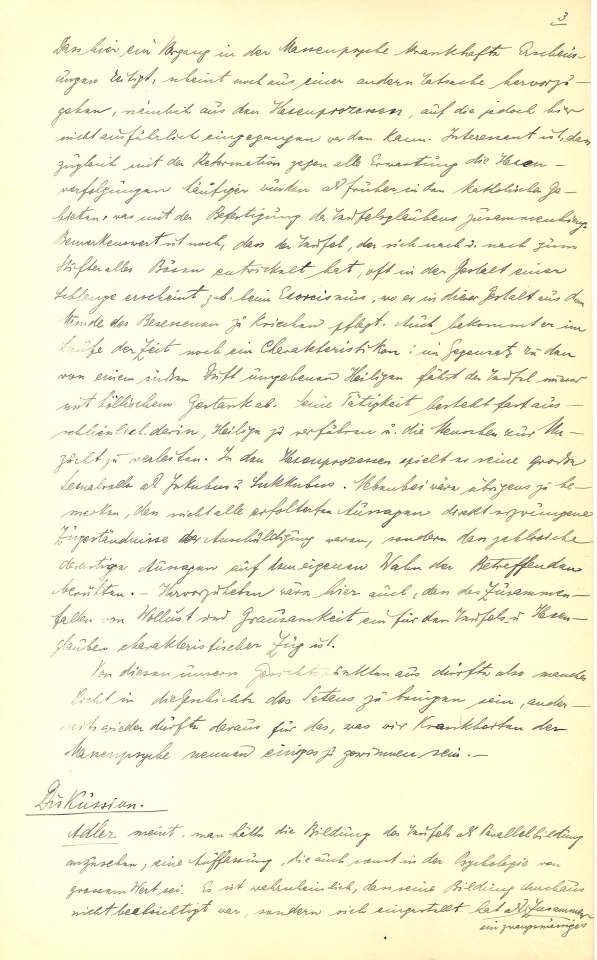 3
Dass hier ein Vorgang in der Massenpsyche krankhafte Erschein-
ungen zeitigt, scheint auch aus einer andern Tatsache hervorzu-
gehen, nämlich aus den Hexenprozessen, auf die jedoch hier
nicht ausführlich eingegangen werden kann. Interessant ist, dass
zugleich mit der Reformation gegen alle Erwartung die Hexen-
verfolgungen häufiger wurden als früher in den katholischen Ge-
bieten, was mit der Befestigung des Teufelsglaubens zusammenhing.
Bemerkenswert ist noch, dass der Teufel, der sich nach u. nach zum
Stifter alles Bösen entwickelt hat, oft in der Gestalt einer
Schlange erscheint z.b. beim Exorcismus, wo es in dieser Gestalt aus dem
Munde des Besessenen zu kriechen pflegt. Auch bekommt er im
Laufe der Zeit noch ein Charakteristikon: im Gegensatz zu den
von einem süssen Duft umgebenen Heiligen fährt der Teufel immer
mit höllischem Gestank ab. Seine Tätigkeit besteht fast aus-
schliesslich darin, Heilige zu verführen u. die Menschen zur Un-
zucht zu verleiten. In den Hexenprozessen spielt er seine grosse
Sexualrolle als Inkubus u. Sukkubus. Nebenbei wäre übrigens zu be-
merken, dass nicht alle erfolterten Aussagen direkt erzwungene
Zugeständnisse der Anschuldigung waren, sondern dass zahlreiche
derartige Aussagen auf dem eigenen Wahn der Betreffenden
beruhten. – Hervorzuheben wäre hier auch, dass das Zusammen-
fallen von Wollust und Grausamkeit ein für den Teufels- u. Hexen-
glauben charakteristischer Zug ist.
Von diesen unsern Gesichtspunkten aus dürfte also manches
Licht in die Geschichte des Satans zu bringen sein, ander-
seits wieder dürfte daraus für das, was wir Krankheiten der
Massenpsyche nennen einiges zu gewinnen sein. –
Diskussion.
Adler meint, man hätte die Bildung des Teufels als Parallelbildung
anzusehen, eine Auffassung, die auch sonst in der Psychologie von
grossem Wert sei. Es ist wahrscheinlich, dass seine Bildung durchaus
nicht beabsichtigt war, sondern sich eingestellt hat als
ein zwangsmässiges